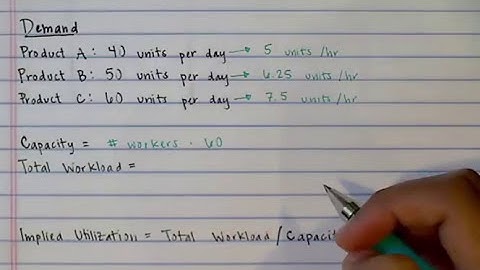 Demand
Product A: 40 units per day → 5 units/hr
Product B: 50 units per day → 6.25 units/hr
Product C: 60 units per day → 7.5 units/hr
Capacity = # workers · 60
Total Workload =
Implied Utilization = Total Workload / Capacit